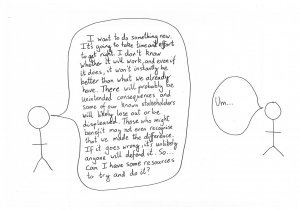 I want to do something new.
It's going to take time and effort
to get right. I don't know
whether it will work, and even if
it does, it won't instantly be
better than what we already
have. There will probably be
unintended consequences and
some of our known stakeholders
will likely lose out or be
displeased. Those who might
benefit may not even recognise
that we made the difference.
If it goes wrong, it's unlikely
anyone will defend it. So....
Can I have some resources
to try and do it?
Um...